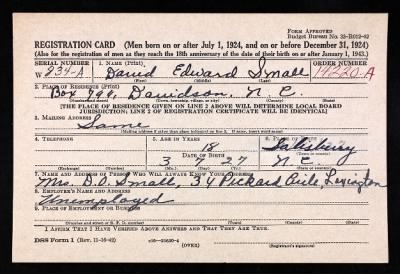 FORM APPROVED
Budget Bureau No. 33-R012-42
REGISTRATION CARD (Men born on or after July 1, 1924, and on or before December 31, 1924)
(Also for the registration of men as they reach the 18th anniversary of the date of their birth on or after January 1, 1943.)
SERIAL NUMBER 1. NAME (Print) ORDER NUMBER
W 234-A David Edward Small 14220-A
(First) (Middle) (Last)
2. PLACE OF RESIDENCE (Print)
Box 766, Davidson, N.C.
(Number and street) (Town, township, village, or city) (County) (State)
[THE PLACE OF RESIDENCE GIVEN ON LINE 2 ABOVE WILL DETERMINE LOCAL BOARD
JURISDICTION; LINE 2 OF REGISTRATION CERTIFICATE WILL BE IDENTICAL]
3. MAILING ADDRESS
Same
[Mailing address if other than place indicated on line 2. If same, insert word same]
4. TELEPHONE 5. AGE IN YEARS 6. PLACE OF BIRTH
18 Salisbury
DATE OF BIRTH (Town or county)
3 7 27 N.C.
(Exchange) (Number) (Mo.) (Day) (Yr.) (State or country)
7. NAME AND ADDRESS OF PERSON WHO WILL ALWAYS KNOW YOUR ADDRESS
Mrs. Small, 34 Lexington
8. EMPLOYER'S NAME AND ADDRESS
Unemployed
9. PLACE OF EMPLOYMENT OR BUSINESS
(Number and street or R. F. D. number) (Town) (County) (State)
I AFFIRM THAT I HAVE VERIFIED ABOVE ANSWERS AND THAT THEY ARE TRUE.
DSS Form 1 (Rev. 11-16-42) (OVER) (Registrant's signature)